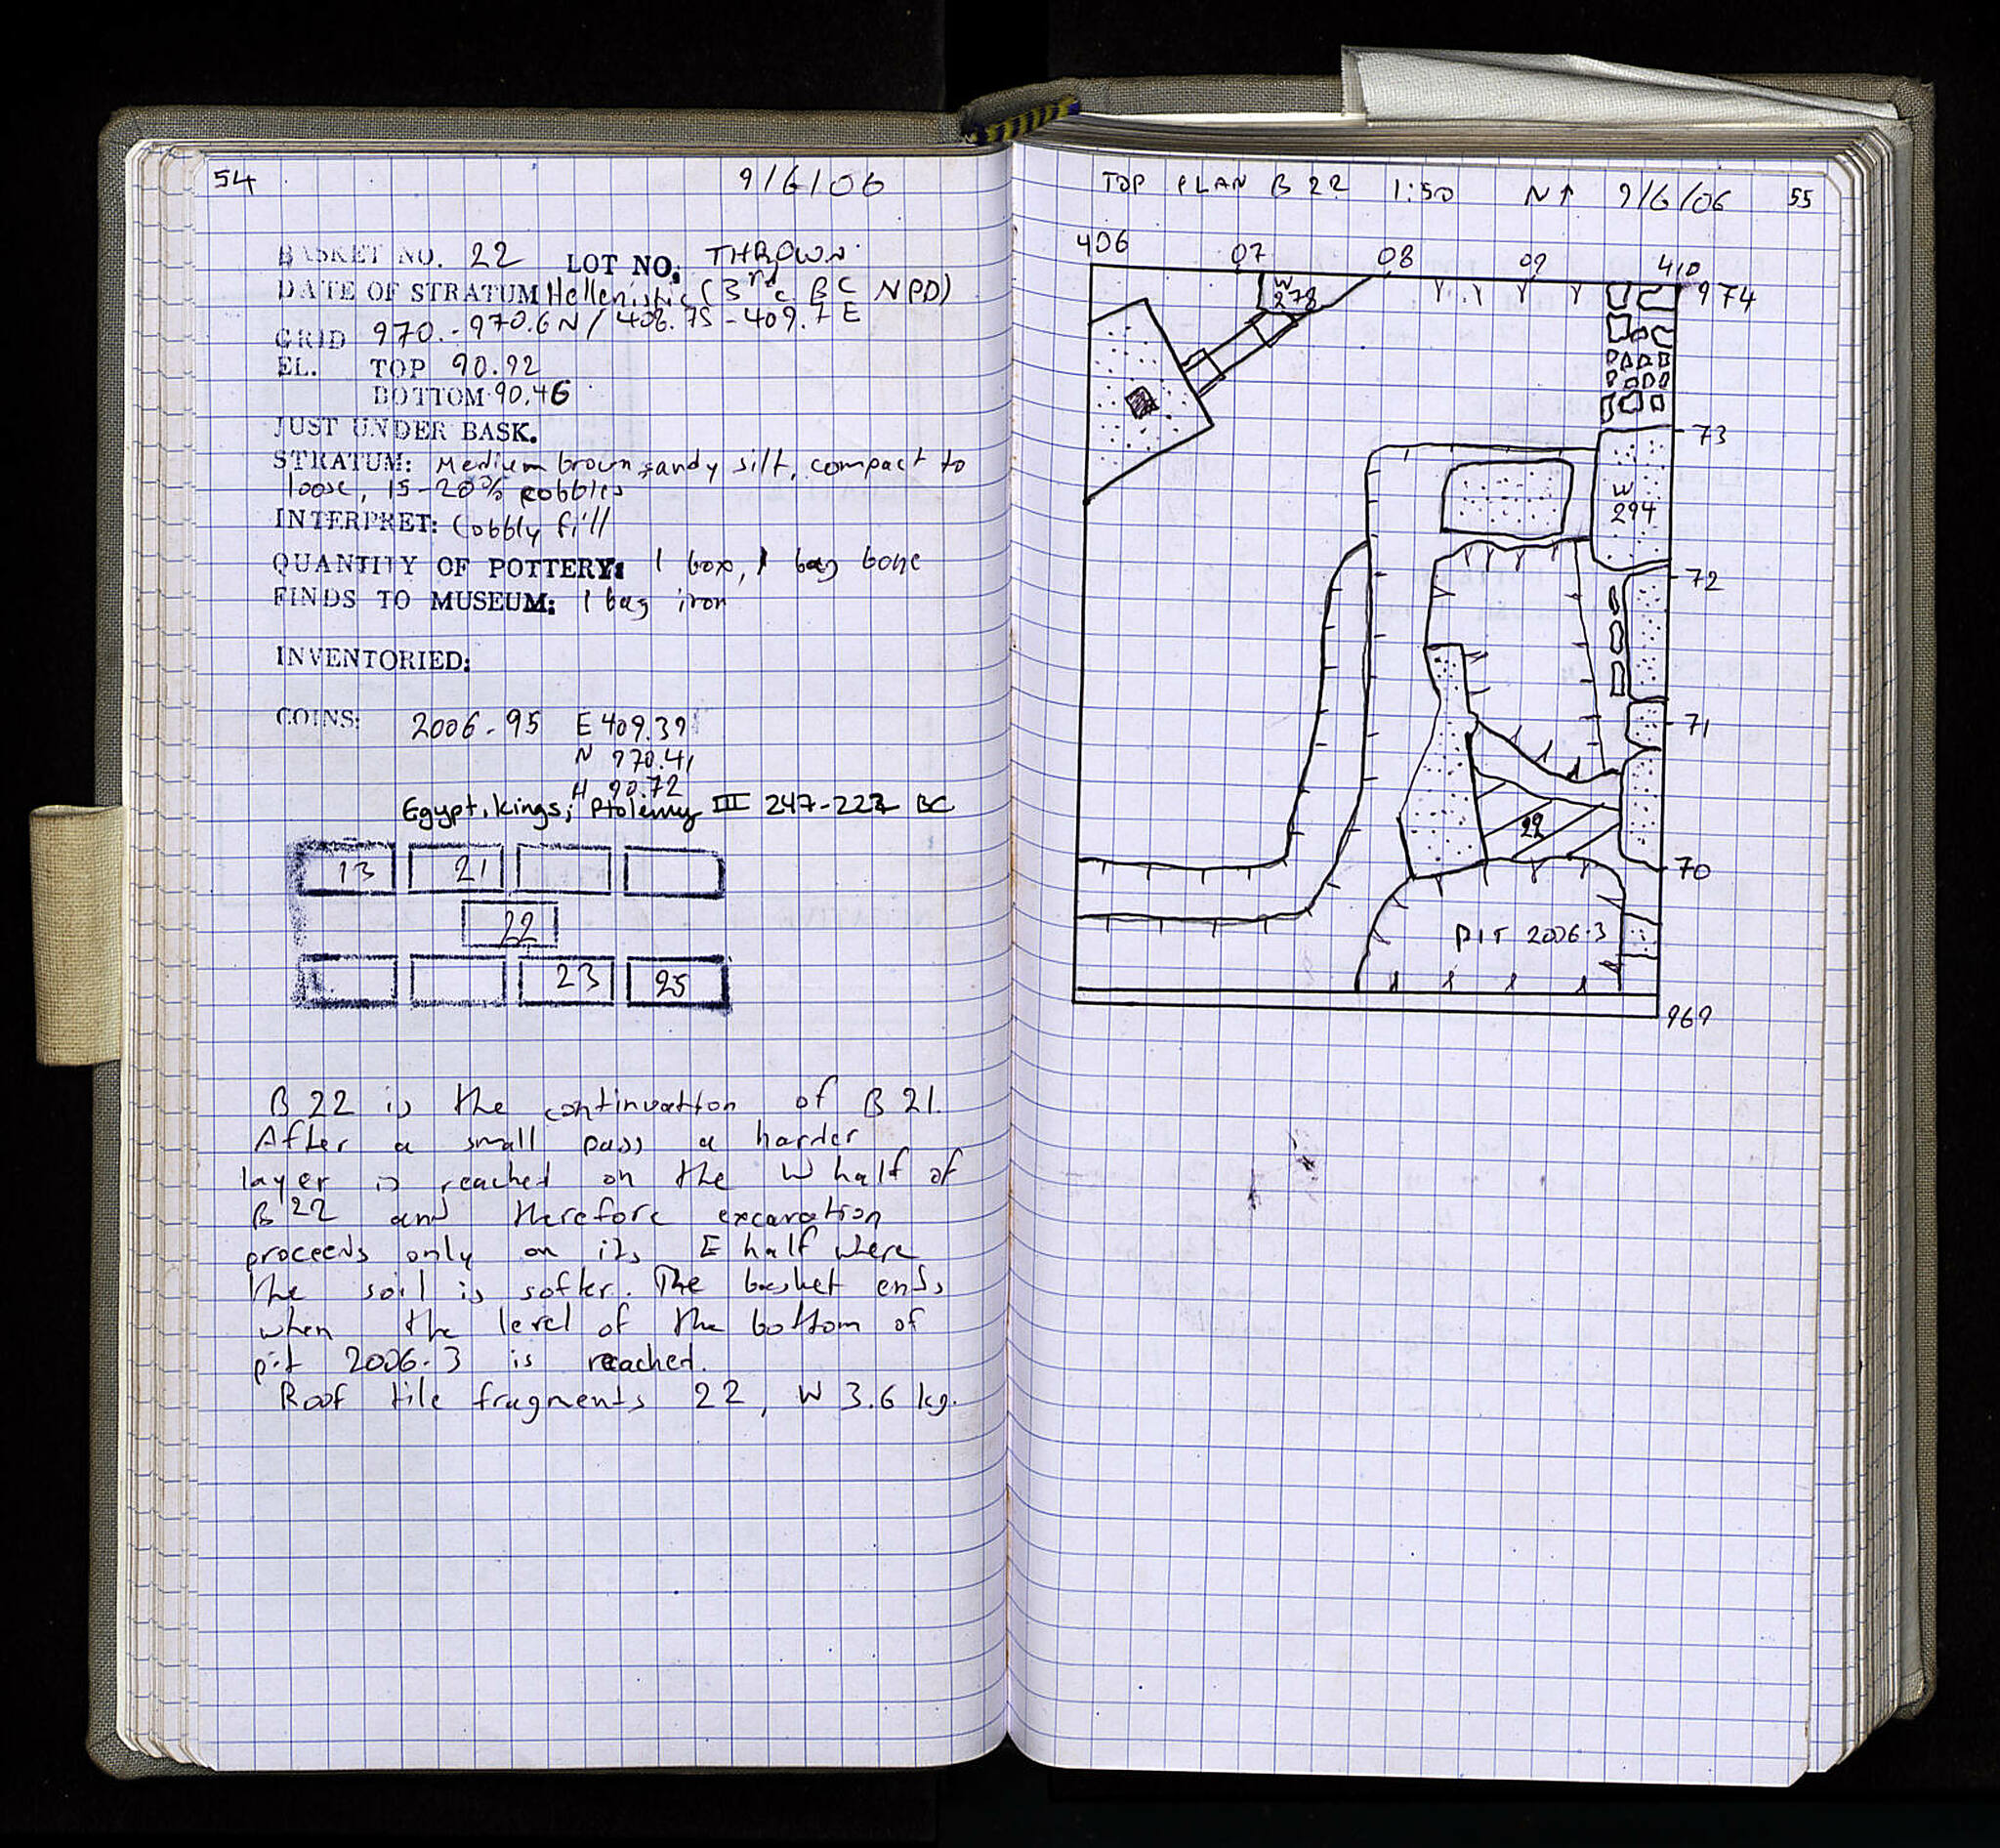 54
9/6/06
BASKET NO. 22 LOT NO. THROWN
DATE OF STRATUM Hellenistic (3rd c BC NPD)
GRID 970.-970.6N / 408.75-409.7 E
EL. TOP 90.92
BOTTOM 90.46
JUST UNDER BASK.
STRATUM: Medium brown sandy silt, compact to
loose, 15-20% cobbles
INTERPRET: Cobbly fill
QUANTITY OF POTTERY: 1 box, 1 bag bone
FINDS TO MUSEUM: 1 bag iron
INVENTORIED:
COINS: 2006-95 E 409.39
N 970.41
H 90.72
Egypt, kings, Ptolemy III 247-222 BC
13 21
22
23 25
B 22 is the continuation of B 21.
After a small pass a harder
layer is reached on the W half of
B 22 and therefore excavation
proceeds only on its E half where
the soil is softer. The basket ends
when the level of the bottom of
pit 2006-3 is reached.
Roof tile fragments 22, W 3.6 kg.
TOP PLAN B 22 1:50 N↑ 9/6/06 55
406 07 08 09 410
974
W
278
73
W
294
72
71
22
70
PIT 2006-3
969